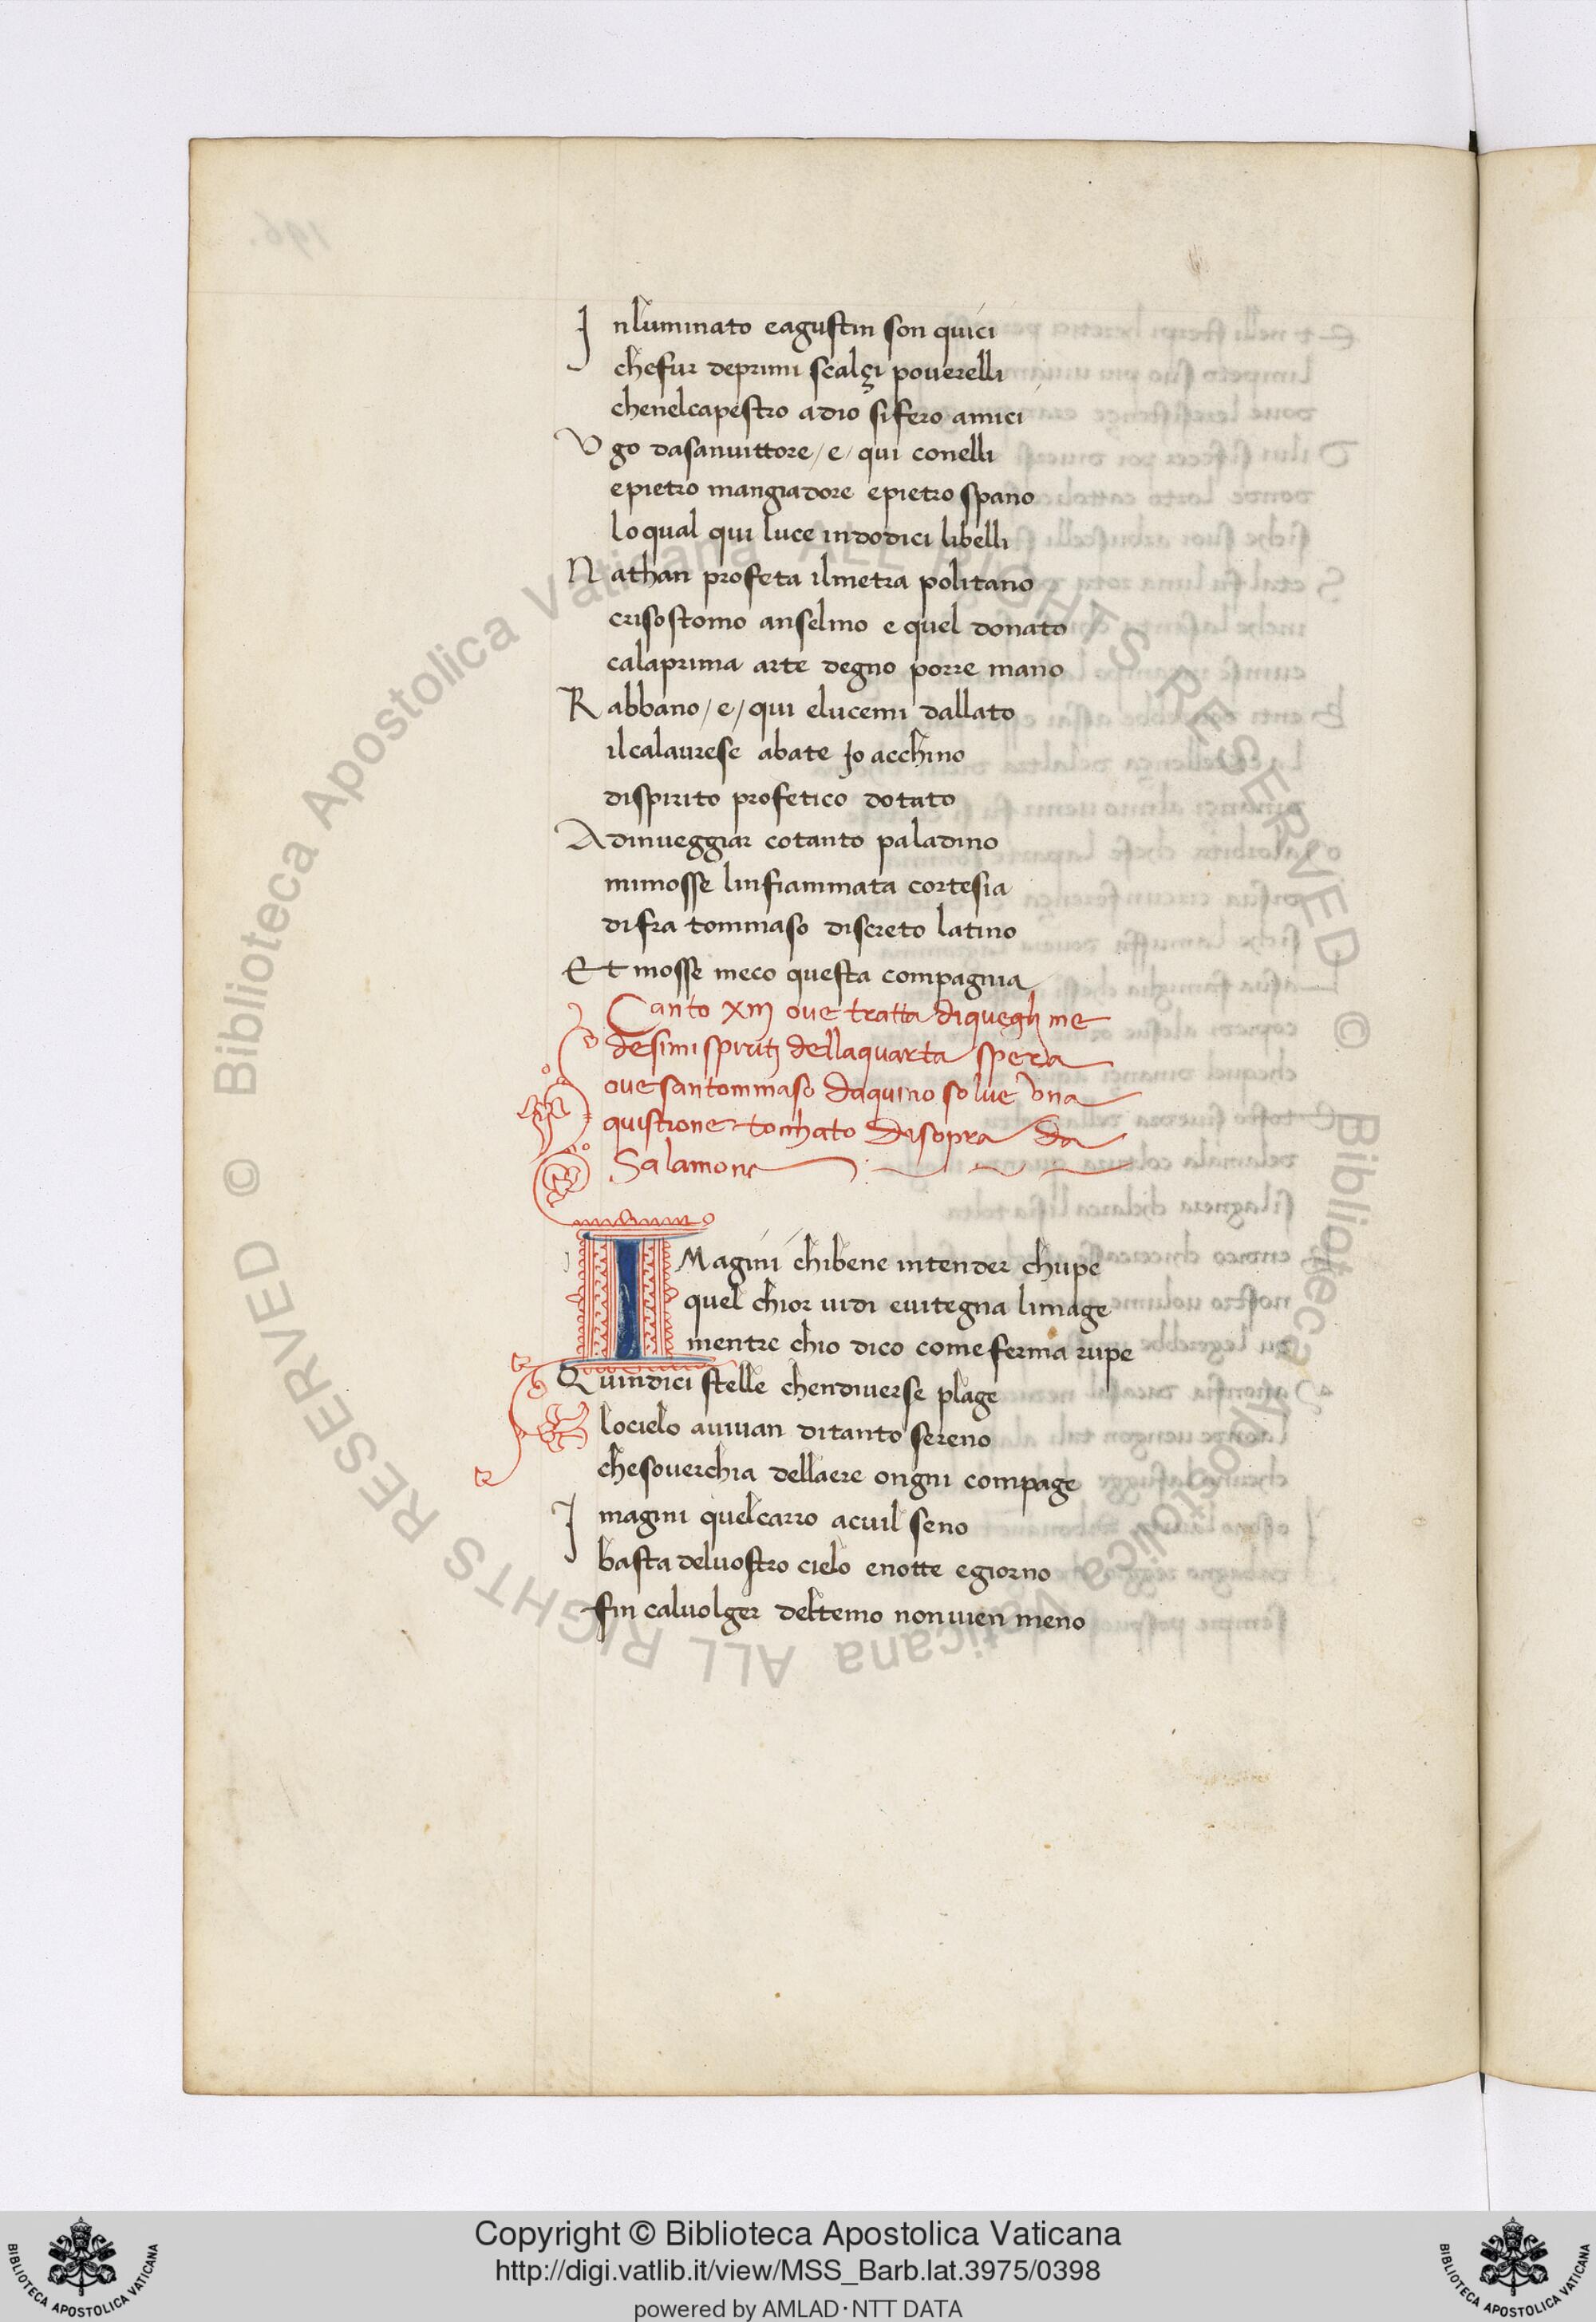 Inluminato eagustin son quici
chefur deprimi scalçi pouerelli
chenelcapestro adio sifero amici
Vgo dasanuittore/e/qui conelli
epietro mangiadore epietro spano
loqual qui luce indodici libelli
Nathan profeta ilmetra politano
crisostomo anselmo e quel donato
calaprima arte degno porre mano
Rabbano/e/qui elucemi dallato
ilcalaurese abate Joacchino
dispirito profetico dotato
Adinueggiar cotanto paladino
mimosse linfiammata cortesia
difra tommaso discreto latino
Et mosse meco questa compagnia
Canto xiij oue tratta diqueglj me
desimi spiritj dellaquarta spera
oue santommaso daquino solue vna
quistione tocchato disopra da
Salamone
IMagini chibene intender chupe
quel chior uidi euitegna limage
mentre chio dico come ferma rupe
Quindici stelle chendiuerse plage
locielo auiuan ditanto sereno
chesouerchia dellaere ongni compage
Imagini quelcarro acuil seno
basta deluostro cielo enotte egiorno
sin caluolger deltemo nonuien meno
© Biblioteca Apostolica Vaticana ALL RIGHTS RESERVED © Biblioteca Apostolica Vaticana ALL RIGHTS RESERVED
Copyright © Biblioteca Apostolica Vaticana
http://digi.vatlib.it/view/MSS_Barb.lat.3975/0398
powered by AMLAD·NTT DATA
BIBLIOTECA APOSTOLICA VATICANA
BIBLIOTECA APOSTOLICA VATICANA